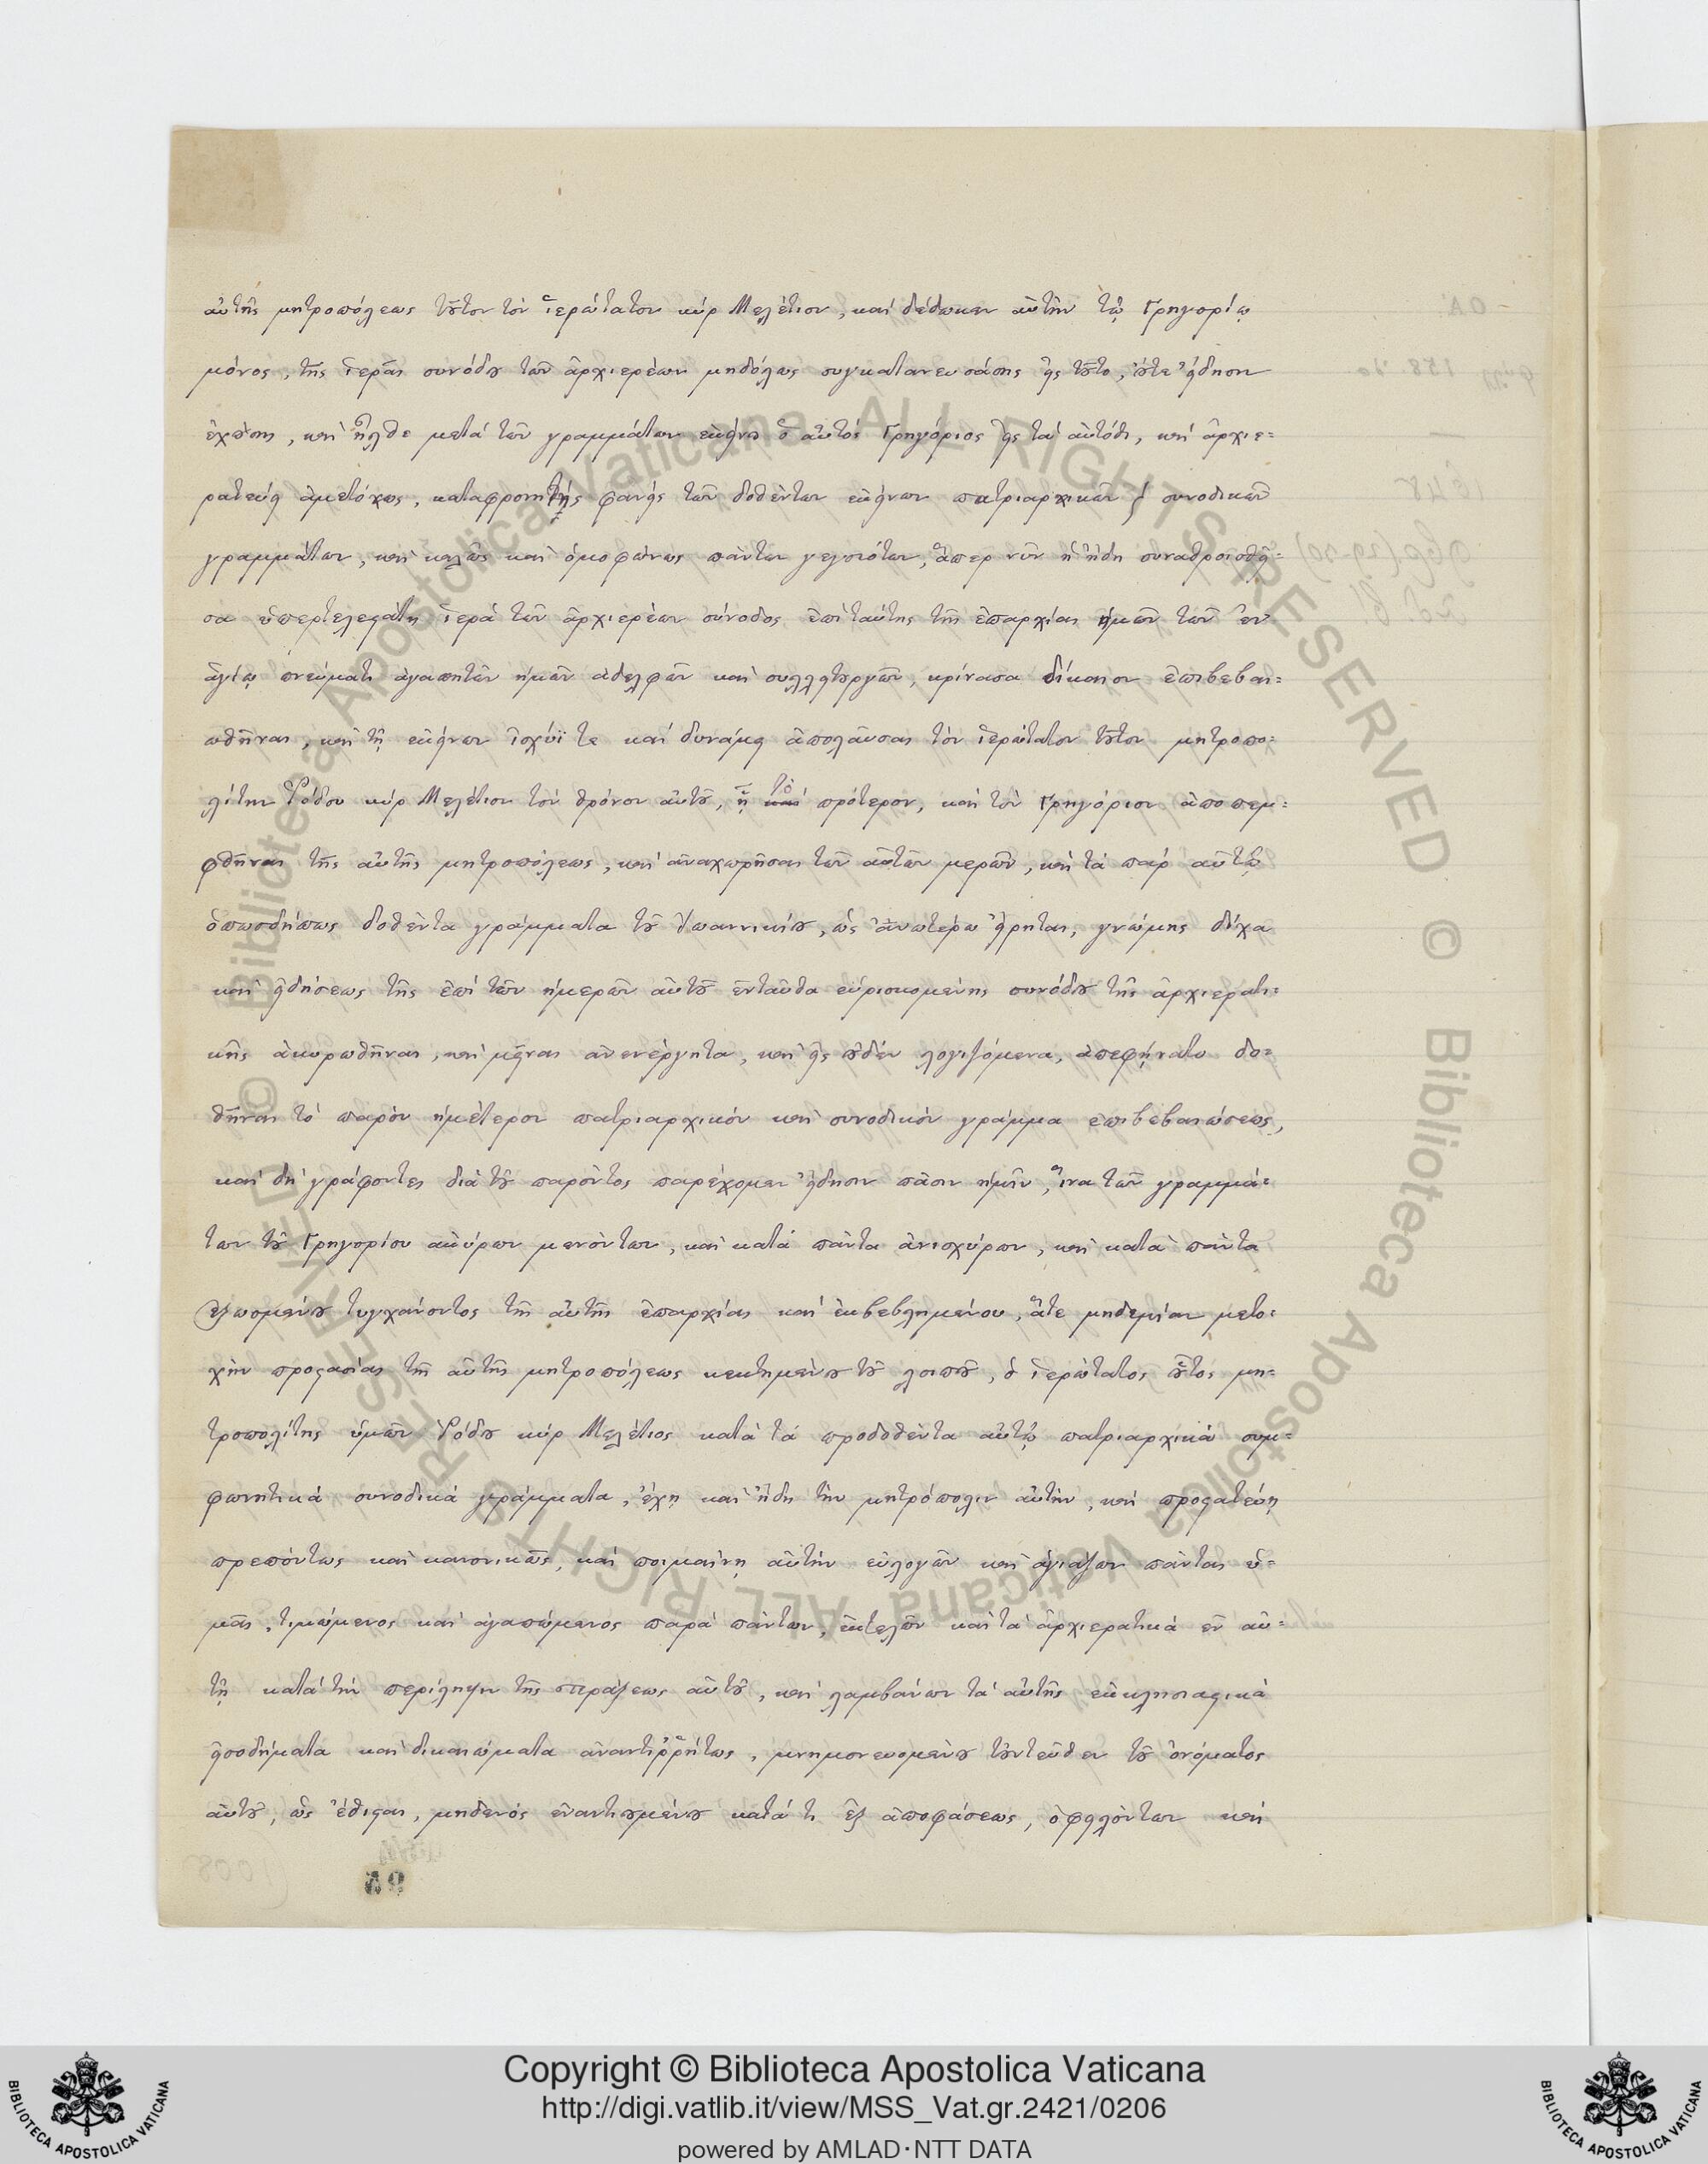 αὐτῆς μητροπόλεως τοῦτον τὸν ἱερώτατον κὺρ Μελέτιον, καὶ δέδωκεν αὐτὴν τῷ Γρηγορίῳ
μόνος, τῆς ἱερᾶς συνόδου τῶν ἀρχιερέων μηδόλως συγκατανευσάσης εἰς τοῦτο, οὔτε εἴδησιν
ἐχούσης, καὶ ἦλθε μετὰ τῶν γραμμάτων ἐκείνου ὁ αὐτὸς Γρηγόριος εἰς τὰ αὐτόθι, καὶ ἀρχιε=
ρατεύει ἀμετόχως, καταφρονητὴς φανεὶς τῶν δοθέντων ἐκείνων πατριαρχικῶν ϛ συνοδικῶν
γραμμάτων, καὶ καλῶς καὶ ὁμοφώνως πάντων γεγονότων, ἅπερ νῦν ἡ ἤδη συναθροισθεῖ=
σα ὑπερτελεστάτη ἱερὰ τῶν ἀρχιερέων σύνοδος ἐπὶ ταύτης τῆς ἐπαρχίας ἡμῶν τῶν ἐν
ἁγίῳ πνεύματι ἀγαπητῶν ἡμῶν ἀδελφῶν καὶ συλλειτουργῶν, κρίνασα δίκαιον ἐπιβεβαι=
ωθῆναι, καὶ τῇ ἐκείνων ἰσχύϊ τε καὶ δυνάμει ἀπολαῦσαι τὸν ἱερώτατον τοῦτον μητροπο=
λίτην Ῥόδου κὺρ Μελέτιον τὸν θρόνον αὐτοῦ, ᾗ τὸ πρότερον, καὶ τὸν Γρηγόριον ἀποπεμ=
φθῆναι τῆς αὐτῆς μητροπόλεως, καὶ ἀναχωρῆσαι τῶν αὐτῶν μερῶν, καὶ τὰ παρ αὐτῷ
ὁπωσδήπως δοθέντα γράμματα τοῦ Ἰωαννικίου, ὡς ἀνωτέρω εἴρηται, γνώμης δίχα
καὶ εἰδήσεως τῆς ἐπὶ τῶν ἡμερῶν αὐτοῦ ἐνταῦθα εὑρισκομένης συνόδου τῆς ἀρχιερατι=
κῆς ἀκυρωθῆναι, καὶ μεῖναι ἀνενέργητα, καὶ εἰς οὐδὲν λογιζόμενα, ἀπεφήνατο δο=
θῆναι τὸ παρὸν ἡμέτερον πατριαρχικὸν καὶ συνοδικὸν γράμμα ἐπιβεβαιώσεως,
καὶ δὴ γράφοντες διὰ τοῦ παρόντος παρέχομεν εἴδησιν πᾶσιν ἡμῖν, ἵνα τῶν γραμμά=
των τοῦ Γρηγορίου ἀκύρων μενόντων, καὶ κατὰ πάντα ἀνισχύρων, καὶ κατὰ πάντα
ἐξωσμένου τυγχάνοντος τῆς αὐτῆς ἐπαρχίας καὶ ἐκβεβλημένου, ἅτε μηδεμίαν μετο=
χὴν προστασίας τῆς αὐτῆς μητροπόλεως κεκτημένου τοῦ λοιποῦ, ὁ ἱερώτατος οὗτος μη=
τροπολίτης ὑμῶν Ῥόδου κὺρ Μελέτιος κατὰ τὰ προδοθέντα αὐτῷ πατριαρχικὰ συμ=
φωνητικὰ συνοδικὰ γράμματα, ἔχῃ καὶ ἤδη τὴν μητρόπολιν αὐτὴν, καὶ προστατεύῃ
πρεπόντως καὶ κανονικῶς, καὶ ποιμαίνῃ αὐτὴν εὐλογῶν καὶ ἁγιάζων πάντας ὑ=
μᾶς, τιμώμενος καὶ ἀγαπώμενος παρὰ πάντων, ἐκτελῶν καὶ τὰ ἀρχιερατικὰ ἐν αὐ=
τῇ κατὰ τὴν περίληψιν τῆς πράξεως αὐτοῦ, καὶ λαμβάνων τὰ αὐτῆς ἐκκλησιαστικὰ
εἰσοδήματα καὶ δικαιώματα ἀναντιῤῥήτως, μνημονευομένου τοὐντεῦθεν τοῦ ὀνόματος
αὐτοῦ, ὡς ἔθισται, μηδενὸς ἐναντιουμένου κατά τι ἐξ ἀποφάσεως, ὀφειλόντων καὶ
Copyright © Biblioteca Apostolica Vaticana
http://digi.vatlib.it/view/MSS_Vat.gr.2421/0206
powered by AMLAD·NTT DATA